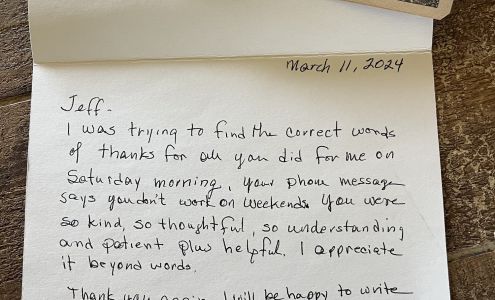 March 11, 2024
Jeff-
I was trying to find the correct words
of thanks for all you did for me on
Saturday morning, your phone message
says you don't work on weekends. You were
so kind, so thoughtful, so understanding
and patient plus helpful. I appreciate
it beyond words.
Thank you again. I will be happy to write